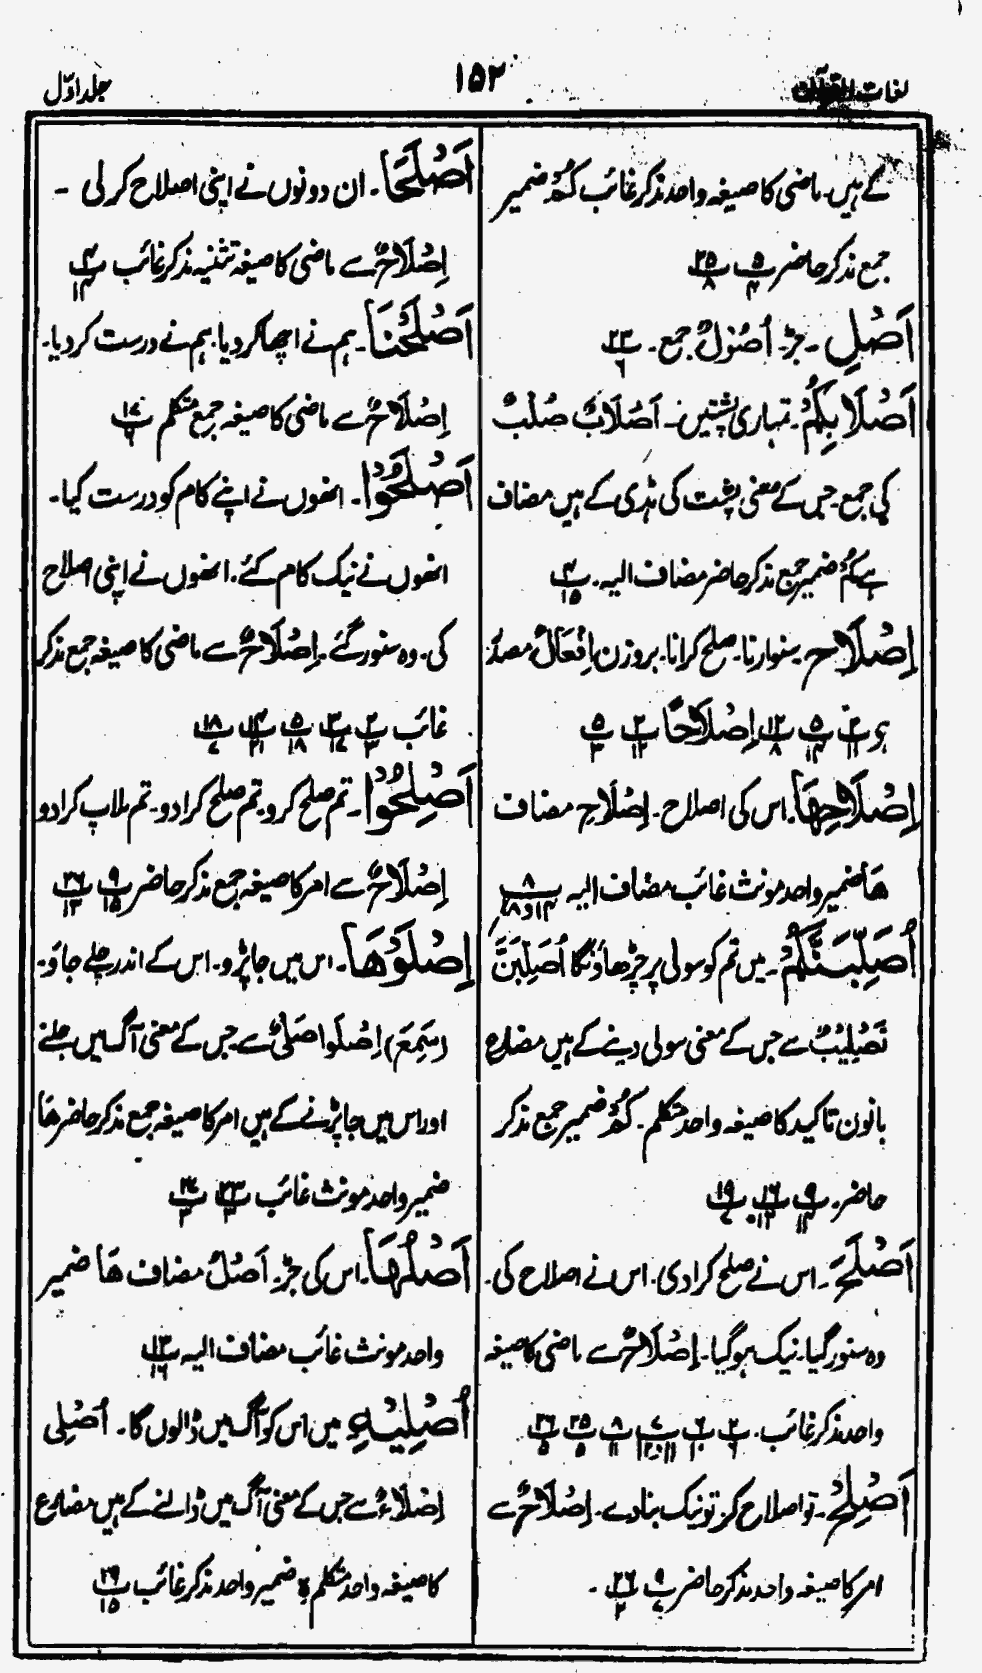 لغات القرآن
۱۵۲
جلد اوّل
کے ہیں۔ ماضی کا صیغہ واحد مذکر غائب کُمْ ضمیر
جمع مذکر حاضر پ ۵/۴ پ ۲۵/۸
اَصْلِ۔ جڑ۔ اُصُوْلٌ جمع۔ پ ۲۳/۶
اَصْلَابِکُمْ۔ تمہاری پشتیں۔ اَصْلَابٌ صُلْبٌ
کی جمع۔ جس کے معنی پشت کی ہڈی کے ہیں مضاف
ہے کُمْ ضمیر جمع مذکر حاضر مضاف الیہ۔ پ ۴/۱۵
اِصْلَاح۔ سنوارنا۔ صلح کرانا۔ بروزن اِفْعَالٌ مصدر
ہے پ ۲/۱۱ پ ۵/۱۴ پ ۱۲/۸ اِصْلَاحًا پ ۲/۱۲ پ ۵/۳
اِصْلَاحِهَا۔ اس کی اصلاح۔ اِصْلَاحِ مضاف
هَا ضمیر واحد مونث غائب مضاف الیہ پ ۸/۱۴و۱۸
اُصَلِّبَنَّكُمْ۔ میں تم کو سولی پر چڑھاؤنگا اُصَلِّبَنَّ
تَصْلِیْبٌ سے جس کے معنی سولی دینے کے ہیں مضارع
بانون تاکید کا صیغہ واحد متکلم۔ کُمْ ضمیر جمع مذکر
حاضر۔ پ ۹/۴ پ ۱۶/۱۲ پ ۱۹/۷
اَصْلَحَ۔ اس نے صلح کرا دی۔ اس نے اصلاح کی۔
وہ سنور گیا۔ نیک ہو گیا۔ اِصْلَاحٌ سے ماضی کا صیغہ
واحد مذکر غائب۔ پ ۲/۶ پ ۶/۱۰ پ ۷/۱۲٬۱۱ پ ۸/۱۱ پ ۲۵/۵ پ ۲۶/۵
اَصْلِحْ۔ تو اصلاح کر۔ تو نیک بنا دے۔ اِصْلَاحٌ سے
امر کا صیغہ واحد مذکر حاضر پ ۹/۷ پ ۲۶/۲۔
اَصْلَحَا۔ ان دونوں نے اپنی اصلاح کر لی۔
اِصْلَاحٌ سے ماضی کا صیغہ تثنیہ مذکر غائب پ ۴/۱۴
اَصْلَحْنَا۔ ہم نے اچھا کر دیا۔ ہم نے درست کر دیا۔
اِصْلَاحٌ سے ماضی کا صیغہ جمع متکلم پ ۱۷/۶
اَصْلَحُوْا۔ انھوں نے اپنے کام کو درست کیا۔
انھوں نے نیک کام کئے۔ انھوں نے اپنی اصلاح
کی۔ وہ سنور گئے۔ اِصْلَاحٌ سے ماضی کا صیغہ جمع مذکر
غائب پ ۲/۳ پ ۳/۱۷ پ ۵/۱۸ پ ۱۴/۲۱ پ ۱۸/۷
اَصْلِحُوْا۔ تم صلح کرو۔ تم صلح کرا دو۔ تم ملاپ کرا دو
اِصْلَاحٌ سے امر کا صیغہ جمع مذکر حاضر پ ۹/۱۵ پ ۲۶/۱۳
اِصْلَوْهَا۔ اس میں جا پڑو۔ اس کے اندر چلے جاؤ۔
(سَمِعَ) اِصْلَوْا صَلْیٌ سے جس کے معنی آگ میں جلنے
اور اس میں جا پڑنے کے ہیں امر کا صیغہ جمع مذکر حاضر هَا
ضمیر واحد مونث غائب پ ۲۳/۳ پ ۲۷/۳
اَصْلُهَا۔ اس کی جڑ۔ اَصْلُ مضاف هَا ضمیر
واحد مونث غائب مضاف الیہ پ ۱۳/۱۶
اُصْلِیْهِ میں اس کو آگ میں ڈالوں گا۔ اُصْلِی
اِصْلَاءٌ سے جس کے معنی آگ میں ڈالنے کے ہیں مضارع
کا صیغہ واحد متکلم ہٖ ضمیر واحد مذکر غائب پ ۲۹/۱۵